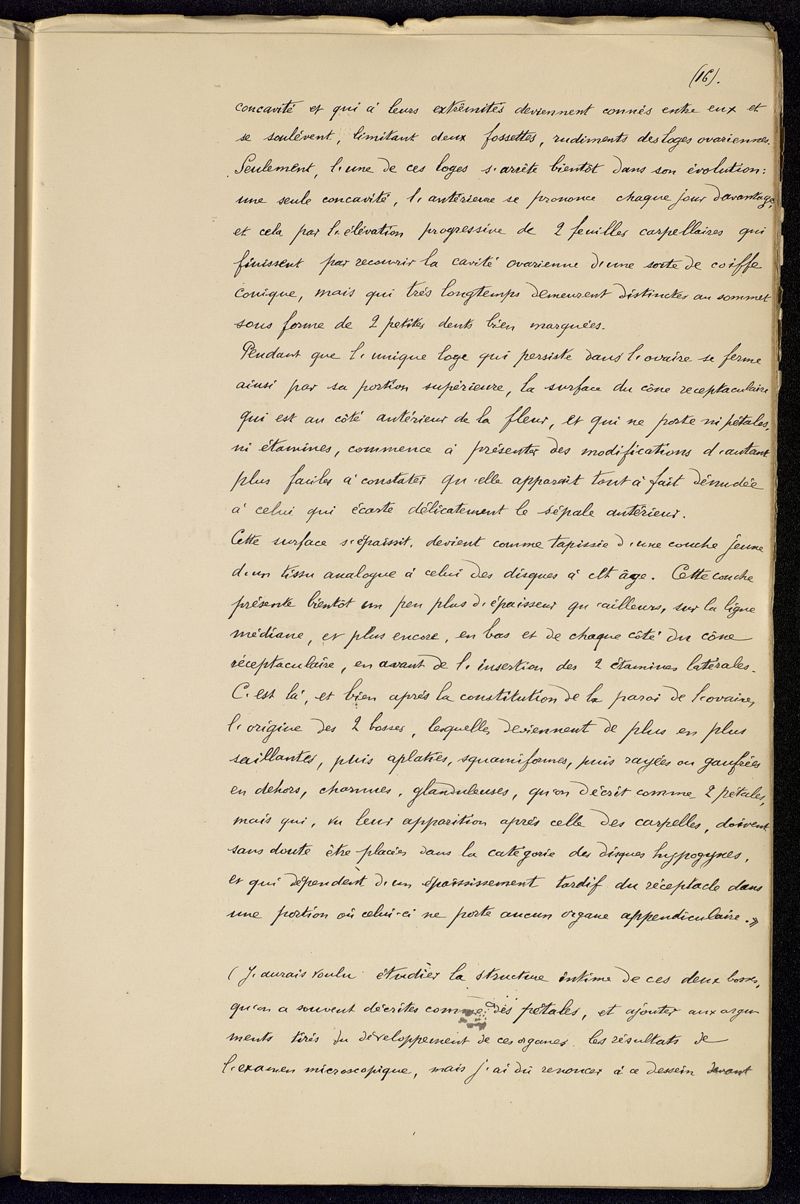 (16).
concavité et qui à leurs extrémités deviennent connés entre eux et
se soulèvent, limitant deux fossettes, rudiments des loges ovariennes.
Seulement, l'une de ces loges s'arrête bientôt dans son évolution:
une seule concavité, l'antérieure se prononce chaque jour davantage,
et cela par l'élévation progressive de 2 feuilles carpellaires qui
finissent par recouvrir la cavité ovarienne d'une sorte de coiffe
conique, mais qui très longtemps demeurent distinctes au sommet
sous forme de 2 petites dents bien marquées.
Pendant que l'unique loge qui persiste dans l'ovaire se ferme
ainsi par sa portion supérieure, la surface du cône receptaculaire
qui est au côté antérieur de la fleur, et qui ne porte ni pétales,
ni étamines, commence à présenter des modifications d'autant
plus faciles à constater qu'elle apparait tout à fait dénudée
à celui qui écarte délicatement le sépale antérieur.
Cette surface s'épaissit, devient comme tapissée d'une couche jeune
d'un tissu analogue à celui des disques à cet âge. Cette couche
présente bientôt un peu plus d'épaisseur qu'ailleurs, sur la ligne
médiane, et plus encore, en bas et de chaque côté du cône
réceptaculaire, en avant de l'insertion des 2 étamines latérales.
C'est là, et bien après la constitution de la paroi de l'ovaire,
l'origine des 2 bosses, lesquelles deviennent de plus en plus
saillantes, puis aplaties, squamiformes, puis rayées ou gaufrées
en dehors, charnues, glanduleuses, qu'on décrit comme 2 pétales,
mais qui, vu leur apparition après celle des carpelles, doivent
sans doute être placées dans la catégorie des disques hypogynes,
et qui dépendent d'un épaississement tardif du réceptacle dans
une portion où celui-ci ne porte aucun organe appendiculaire.»
(J'aurais voulu étudier la structure intime de ces deux bosses,
qu'on a souvent décrites comme des pétales, et ajouter aux argu
ments tirés du développement de ces organes les résultats de
l'examen microscopique, mais j'ai dû renoncer à ce dessein devant